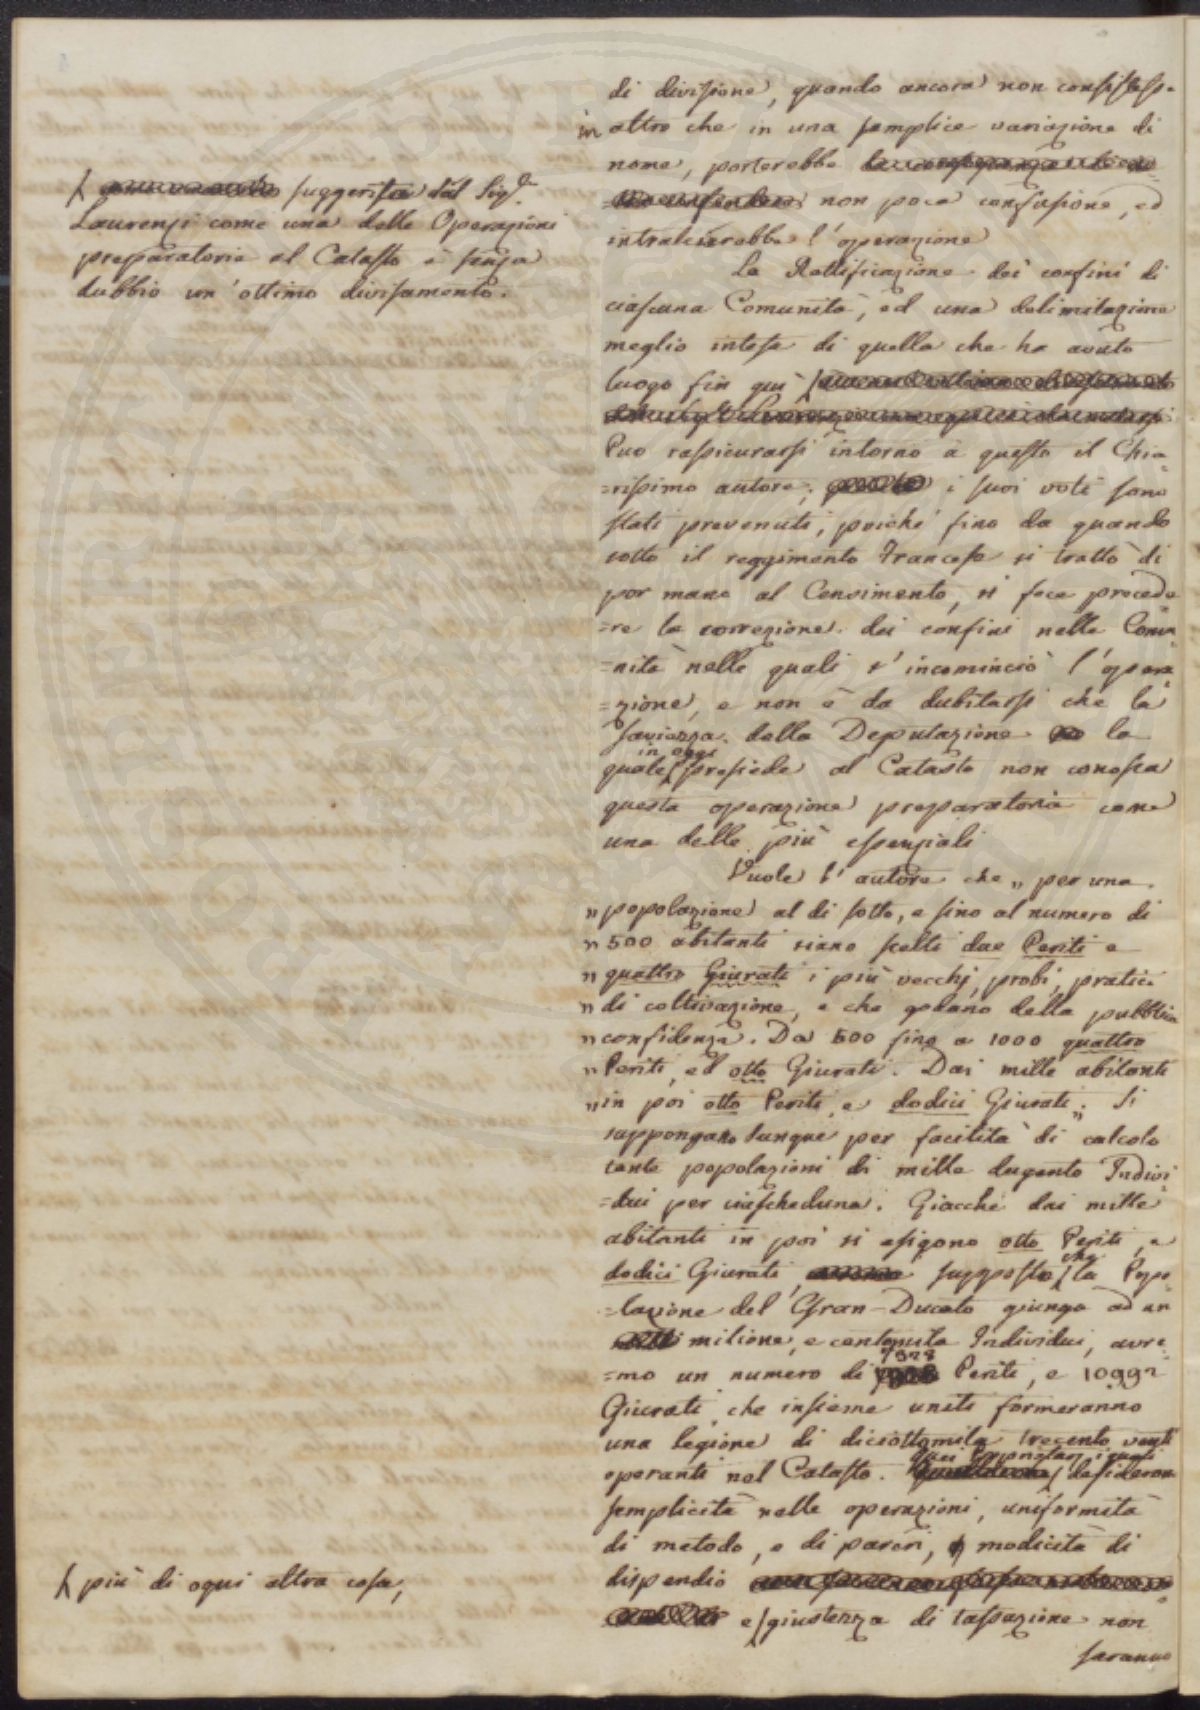 di divisione, quando ancora non consistess-
in altro che in una semplice variazione di
nome, porterebbe
non poca confusione, ed
intralcierebbe l'operazione
La Rettificazione dei confini di
ciascuna Comunità, ed una delimitazione
meglio intesa di quella che ha avuto
luogo fin quì
Può rassicurarsi intorno a questo il Chia-
=rissimo autore; i suoi voti sono
stati prevenuti, poiché fino da quando
sotto il reggimento Francese si trattò di
por mano al Censimento, si fece precede-
=re la correzione dei confini nelle Comu-
=nità nelle quali s'incominciò l'opera-
=zione, e non è da dubitarsi che la
saviezza della Deputazione la
quale in oggi presiede al Catasto non conosca
questa operazione preparatoria come
una delle più essenziali
Vuole l'autore che „ per una
„ popolazione al di sotto, e fino al numero di
„ 500 abitanti siano scelti due Periti e
„ quattro Giurati i più vecchj, probi, pratici
„ di coltivazione, e che godano della pubblica
„ confidenza. Da 500 fino a 1000 quattro
„ Periti, ed otto Giurati. Dai mille abitanti
„ in poi otto Periti, e dodici Giurati „. Si
suppongano dunque per facilità di calcolo
tante popolazioni di mille dugento Indivi-
=dui per ciascheduna. Giacché dai mille
abitanti in poi si esigono otto Periti, e
dodici Giurati, supposto che la Popo-
=lazione del Gran-Ducato giunga ad un
milione, e centomila Individui, avre-
=mo un numero di 7328 Periti, e 10992
Giurati, che insieme uniti formeranno
una legione di diciottomila trecento venti
operanti nel Catasto. Quei Proprietarj i quali desideran
semplicità nelle operazioni, uniformità
di metodo, e di pareri, modicità di
dispendio
e giustezza di tassazione non
saranno
suggerita dal Sig.r
Laurenzi come una delle Operazioni
preparatorie al Catasto è senza
dubbio un'ottimo divisamento.
più di ogni altra cosa,